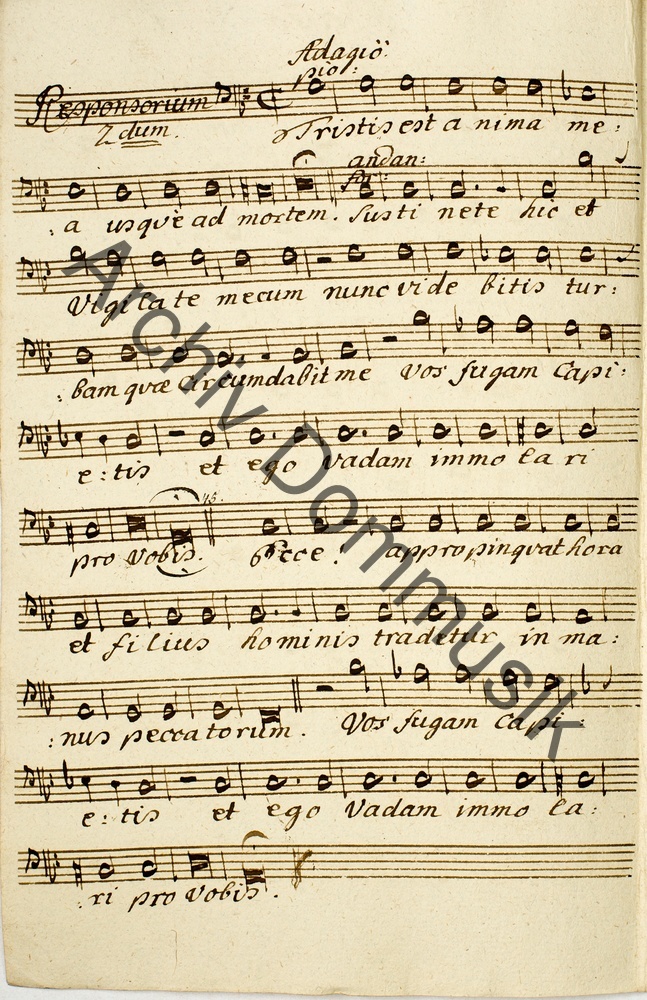 Adagiò.
pio:
Responsorium
2dum.
Tristis est anima me:
andan:
for:
:a usque ad mortem. Sustinete hic et
Vigilate mecum nunc videbitis tur:
:bam quæ circumdabit me Vos fugam Capi:
e:tis et ego Vadam immolari
pro Vobis. Ecce! appropinquat hora
et filius hominis tradetur in ma:
:nus peccatorum. Vos fugam Capi:
e:tis et ego Vadam immola:
:ri pro Vobis.
Archiv Dommusik